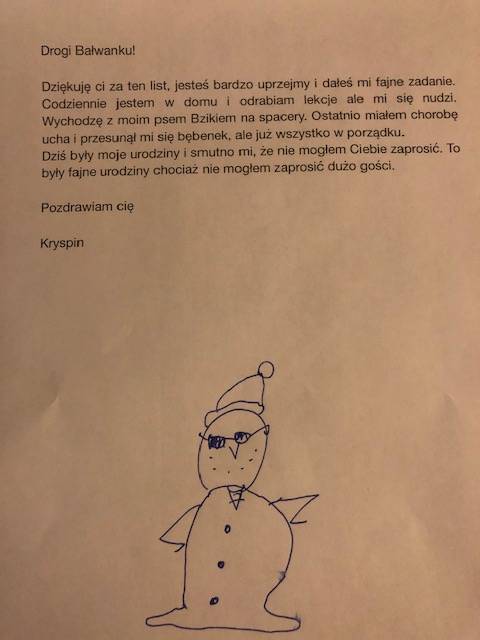 Drogi Bałwanku!
Dziękuję ci za ten list, jesteś bardzo uprzejmy i dałeś mi fajne zadanie.
Codziennie jestem w domu i odrabiam lekcje ale mi się nudzi.
Wychodzę z moim psem Bzikiem na spacery. Ostatnio miałem chorobę
ucha i przesunął mi się bębenek, ale już wszystko w porządku.
Dziś były moje urodziny i smutno mi, że nie mogłem Ciebie zaprosić. To
były fajne urodziny chociaż nie mogłem zaprosić dużo gości.
Pozdrawiam cię
Kryspin